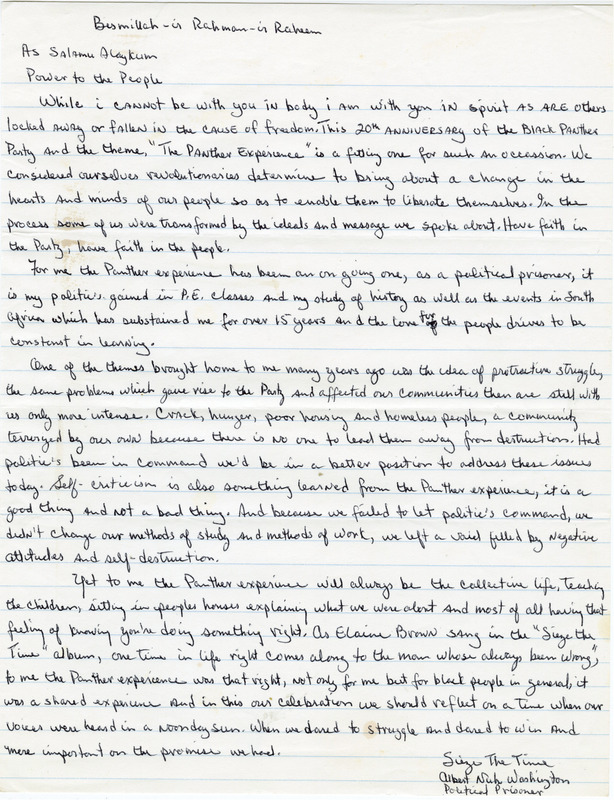 Besmillah-ir Rahman-ir Raheem
As Salamu Alaykum
Power to the People
While i cannot be with you in body i am with you in spirit as are others
locked away or fallen in the cause of freedom. This 20th anniversary of the Black Panther
Party and the theme, "The Panther Experience" is a fitting one for such an occassion. We
considered ourselves revolutionaries determine to bring about a change in the
hearts and minds of our people so as to enable them to liberate themselves. In the
process some of us were transformed by the ideals and message we spoke about. Have faith in
the Party, have faith in the people.
For me the Panther experience has been an on going one, as a political prisoner, it
is my politics gained in P.E. classes and my study of history as well as the events in South
Africa which has substained me for over 15 years and the love for the people drives to be
constant in learning.
One of the themes brought home to me many years ago was the idea of protractive struggle,
the same problems which gave rise to the Party and affected our communities then are still with
us only more intense. Crack, hunger, poor housing and homeless people, a community
terrorged by our own because there is no one to lead them away from destruction. Had
politic's been in command we'd be in a better position to address these issues
today. Self-criticism is also something learned from the Panther experience, it is a
good thing and not a bad thing. And because we failed to let politic's command, we
didn't change our methods of study and methods of work, we left a void filled by negative
attitudes and self-destruction.
Yet to me the Panther experience will always be the collective life, teaching
the children, sitting in peoples houses explaining what we were about and most of all having that
feeling of knowing you're doing something right. As Elaine Brown sang in the "Siege the
Time" album, one time in life right comes along to the man whose always been wrong,
to me the Panther experience was that right, not only for me but for black people in general, it
was a shared experience and in this our celebration we should reflect on a time when our
voices were heard in a noonday sun. When we dared to struggle and dared to win and
more important on the promise we had.
Siege The Time
Albert Nuh Washington
Political Prisoner